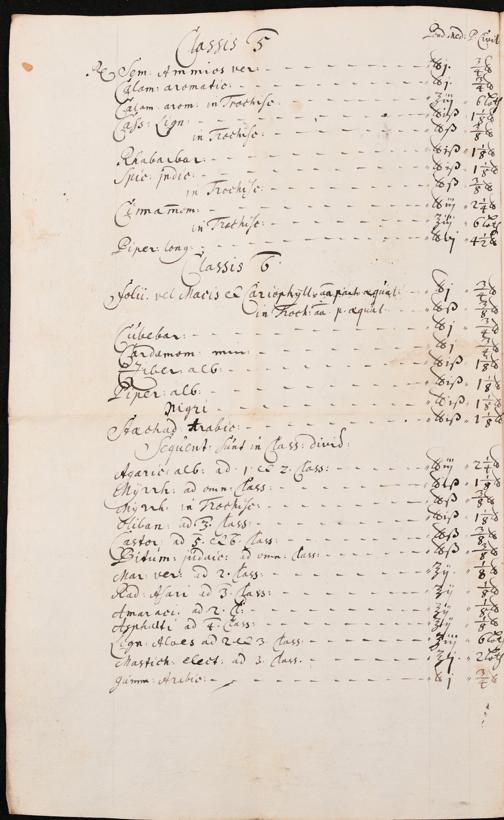 Classis 5 Pond. Med: P. Civil
℞ Sem: Ammios ver: ℔j. ¾℔
Calam: aromatic: ℔j. ¾℔
Calam: arom: in Trochisc: ℥iij 6 loth
Cass: Lign: ℔iß 1⅛℔
in Trochisc: ℔ß ⅜℔
Rhabarbar: ℔iß 1⅛℔
Spic: Indic: ℔iß 1⅛℔
in Trochisc: ℔ß ⅜℔
Cinnamom: ℔iij 2¼℔
in Trochisc: ℥iij 6 loth
Piper: long: ℔vj 4½℔
Classis 6
Folii: vel Macis et Cariophyll: aa part: æqual: ℔j ¾℔
in Troch: aa p. æqual: ℔ß ⅜℔
Cubebar: ℔j ¾℔
Cardamom: min: ℔j ¾℔
Ziber: alb: ℔iß 1⅛℔
Piper: alb: ℔iß 1⅛℔
Nigri ℔iß 1⅛℔
Stæchad: Arabic: ℔iß 1⅛℔
Sequent: sunt in Class: divid:
Agaric: alb: ad 1. et 2. Class: ℔iij 2¼℔
Myrrh: ad omn: Class: ℔iß 1⅛℔
Myrrh: in Trochisc: ℔ß ⅜℔
Oliban: ad 3. Class: ℔iß 1⅛℔
Castor: ad 5. et 6. Class: ℔ß ⅜℔
Bitum: judaic: ad omn: Class: ℔ß ⅜℔
Mar: ver: ad 2. Class: ℥ij ⅛℔
Rad: Asari ad 3. Class: ℥ij ⅛℔
Amaraci: ad 2. Cl: ℥ij ⅛℔
Asphalti ad 4. Class:
Lign: Aloes ad 2 et 3 Class: 6 loth
Mastich: elect: ad 3. Class. 2 loth
Gumm: Arabic: ℔j ¾